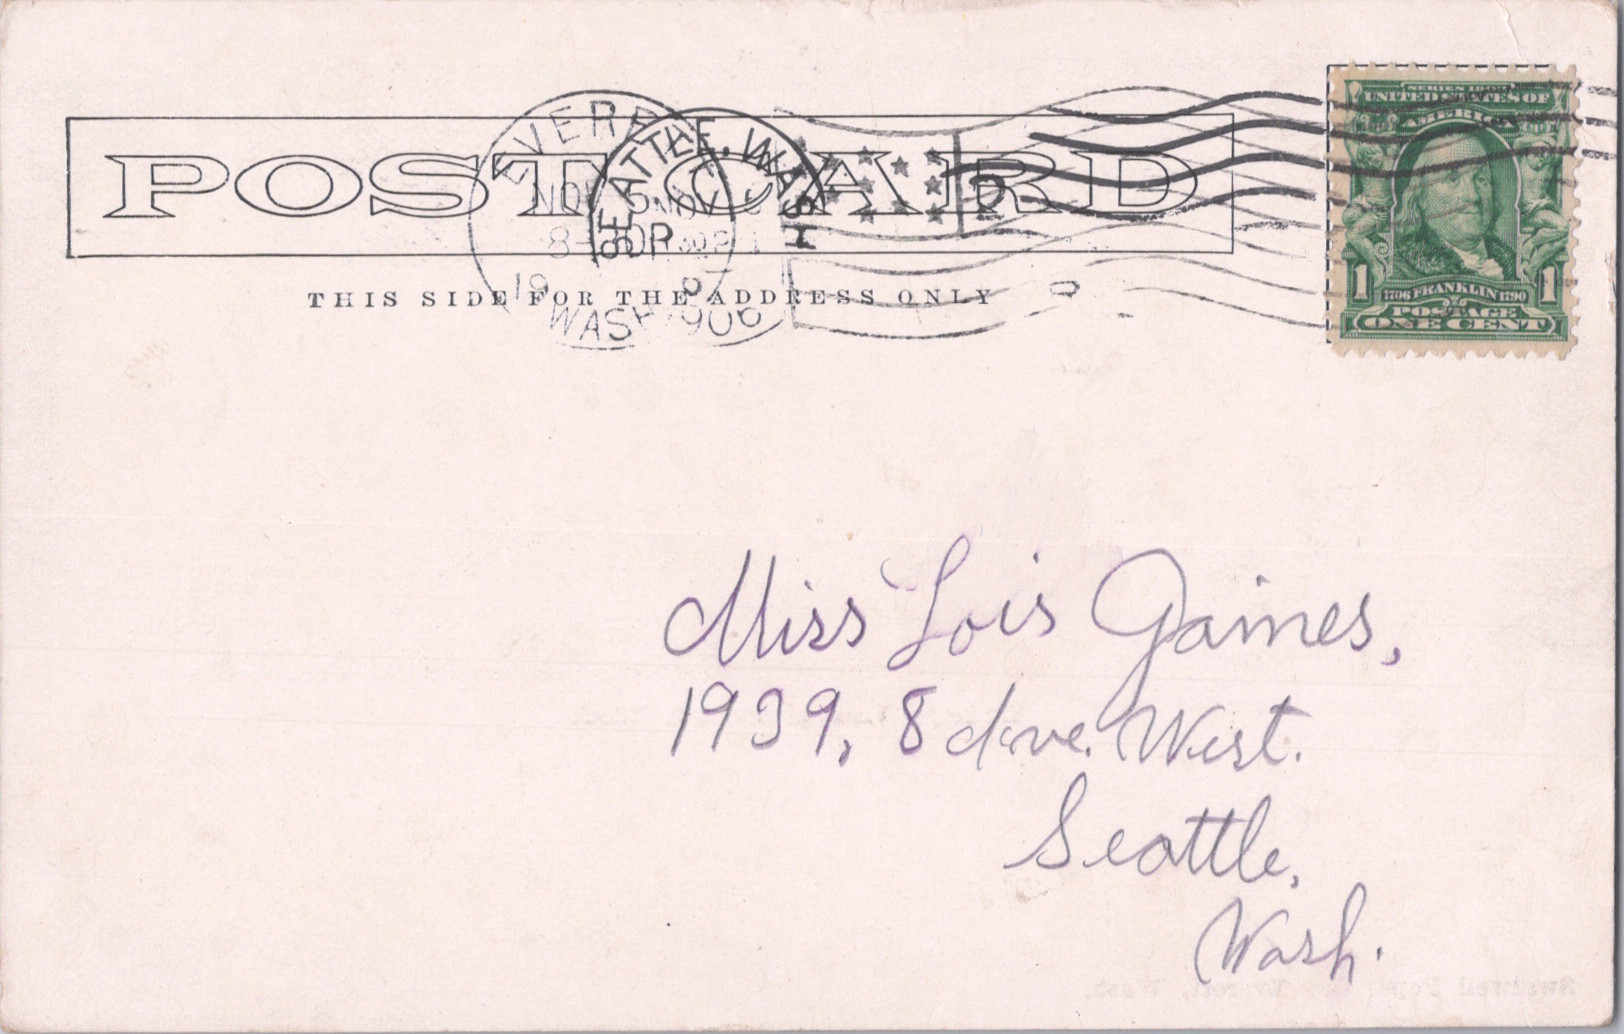 POST CARD
THIS SIDE FOR THE ADDRESS ONLY
EVERE
NOV 5
8-30P
19
WASH.
SEATTLE, WASH
NOV
1906
D
SERIES 1902
UNITED STATES OF
AMERICA
1706 FRANKLIN 1790
1 1
POSTAGE
ONE CENT
Miss Lois Gaines,
1939, 8 Ave. West.
Seattle,
Wash.
Everett, Wash.